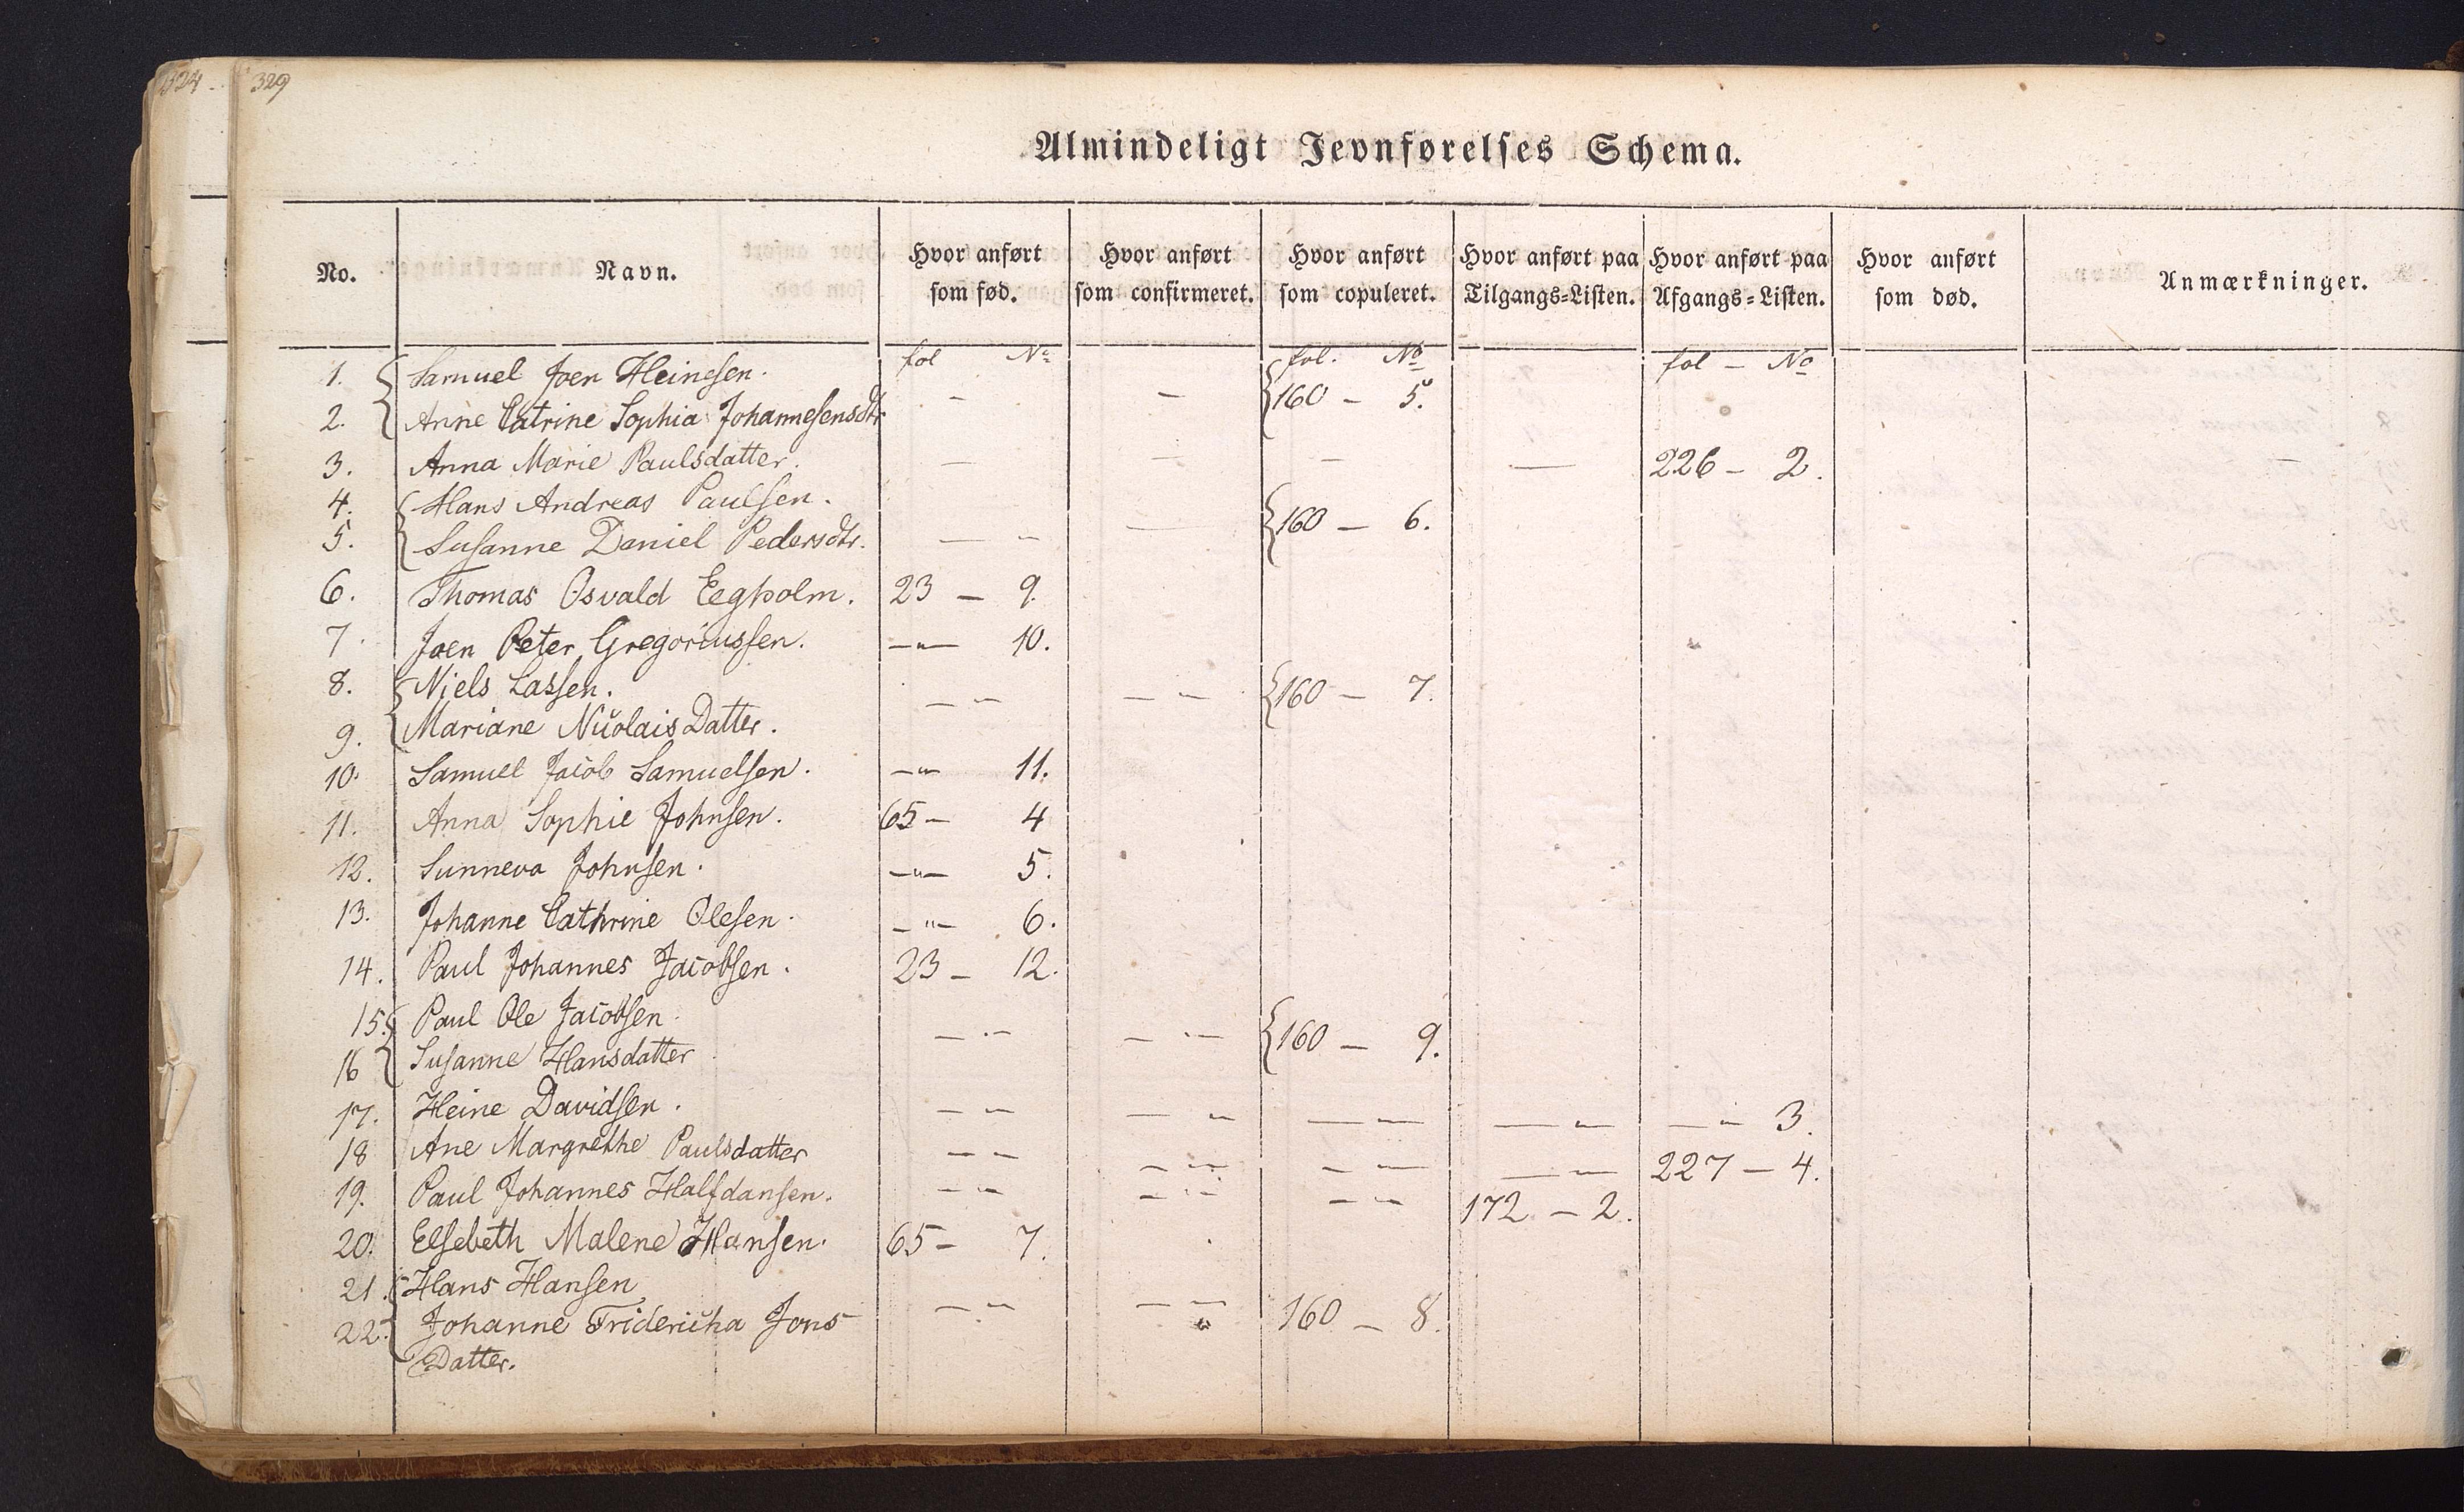 324
329
Almindeligt Jevnførelses Schema.
No. Navn. Hvor anført som fød. Hvor anført som confirmeret. Hvor anført som copuleret. Hvor anført paa Tilgangs-Listen. Hvor anført paa Afgangs-Listen. Hvor anført som død. Anmærkninger.
fol No fol. No fol – No
1. Samuel Joen Heinesen.
2. Anne Catrine Sophia Johannesensdtr – – 160 – 5.
3. Anna Marie Paulsdatter. – – – – 226 – 2.
4. Hans Andreas Paulsen.
5. Susanne Daniel Pedersdtr. – – – 160 – 6.
6. Thomas Osvald Eegholm. 23 – 9.
7. Joen Peter Gregoriussen. –"– 10.
8. Niels Lassen.
9. Mariane Nicolais Datter. – – – – 160 – 7.
10. Samuel Jacob Samuelsen. –"– 11.
11. Anna Sophie Johnsen. 65 – 4
12. Sunneva Johnsen. –"– 5.
13. Johanne Cathrine Olesen. –"– 6.
14. Paul Johannes Jacobsen. 23 – 12.
15. Paul Ole Jacobsen
16 Susanne Hansdatter – – – – 160 – 9.
17. Heine Davidsen. – – – – – – – – – – 3.
18 Ane Margrethe Paulsdatter – – – – – – – – 227 – 4.
19. Paul Johannes Halfdansen. – – – – – – 172 – 2.
20. Elsebeth Malene Hansen. 65 – 7.
21. Hans Hansen
22. Johanne Fridericha Jons – – – – 160 – 8.
Datter.